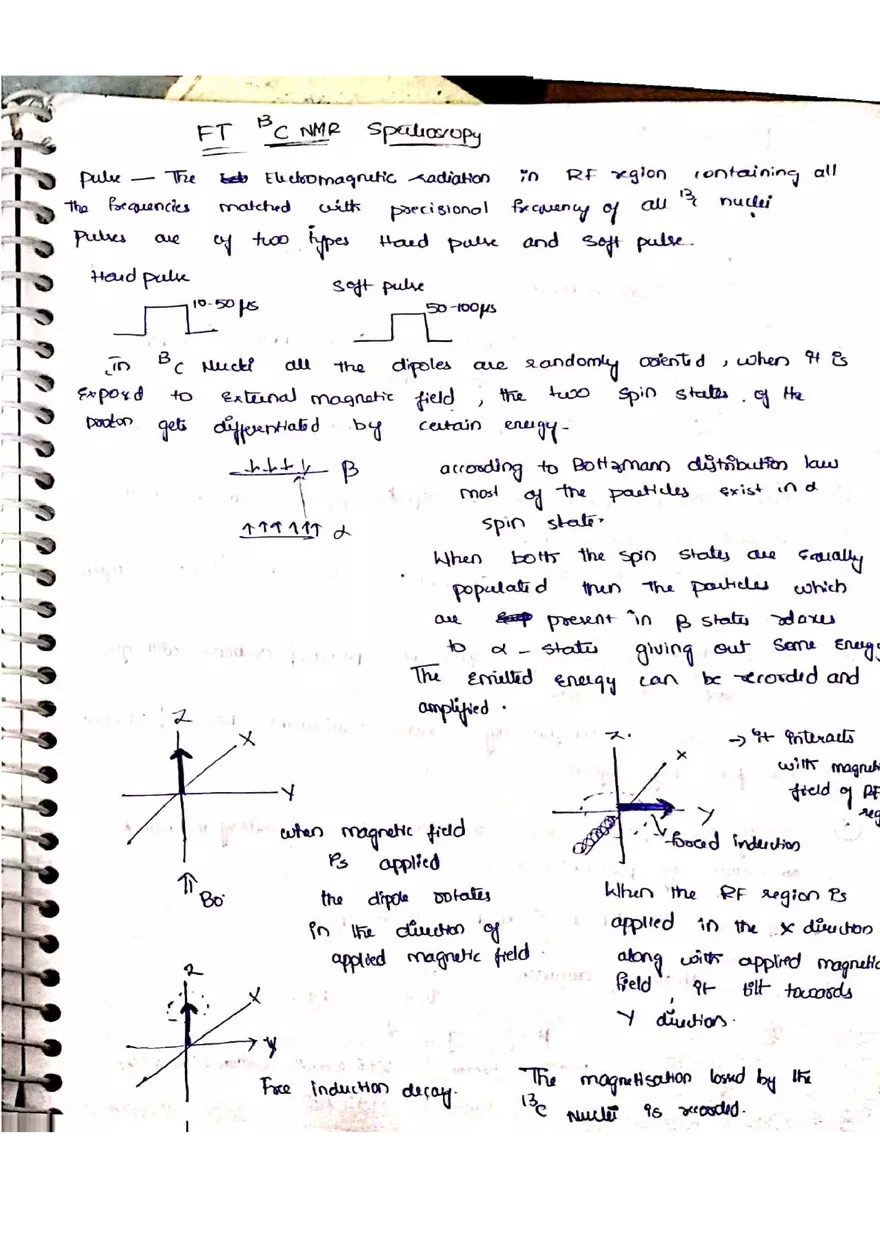 FT 13C NMR Spectroscopy
pulse — The Electromagnetic radiation in RF region containing all
the frequencies matched with precisional frequency of all 13C nuclei
Pulses are of two types Hard pulse and soft pulse.
Hard pulse
soft pulse
10-50 μs
50-100μs
in 13C Nuclei all the dipoles are randomly oriented, when it is
Exposed to External magnetic field, the two spin states of the
proton gets differentiated by certain energy.
β
α
according to Boltzmann distribution law
most of the particles exist in α
spin state.
When both the spin states are equally
populated then the particles which
are present in β states relaxes
to α - states giving out some Energy
The Emitted Energy can be recorded and
amplified.
Z
X
Y
Bo
when magnetic field
is applied
the dipole rotates
in the direction of
applied magnetic field.
Z
X
Y
→ it interacts
with magnetic
field of RF
reg
forced induction
When the RF region is
applied in the x direction
along with applied magnetic
field, it tilt towards
Y direction.
Z
X
Y
Free induction decay.
The magnetisation lossed by the
13C Nuclei is recorded.